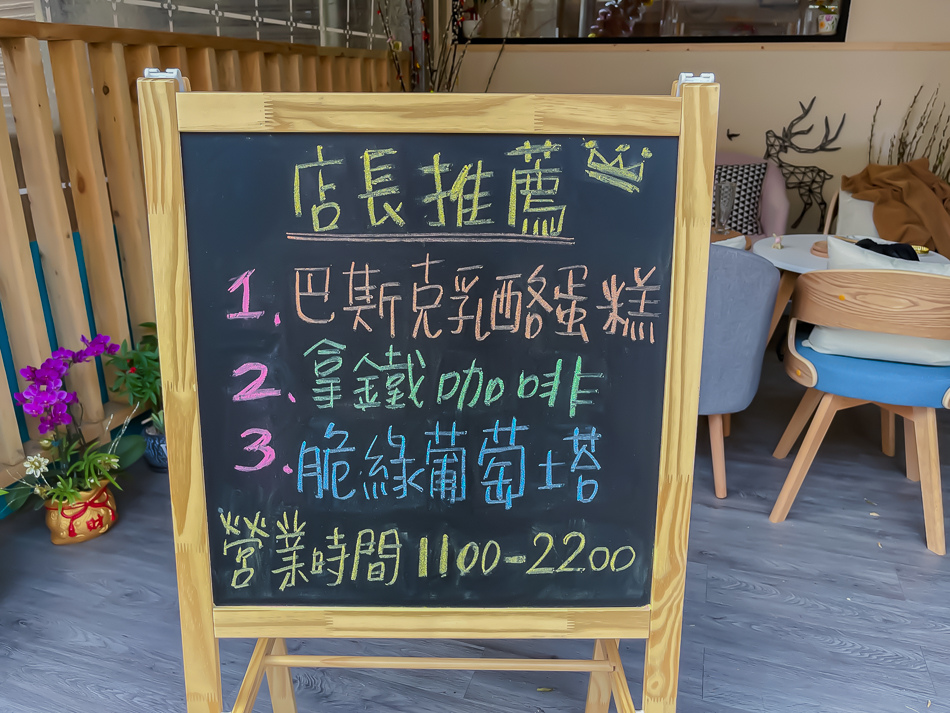 店長推薦
1. 巴斯克乳酪蛋糕
2. 拿鐵咖啡
3. 脆綠葡萄塔
營業時間 1100-2200